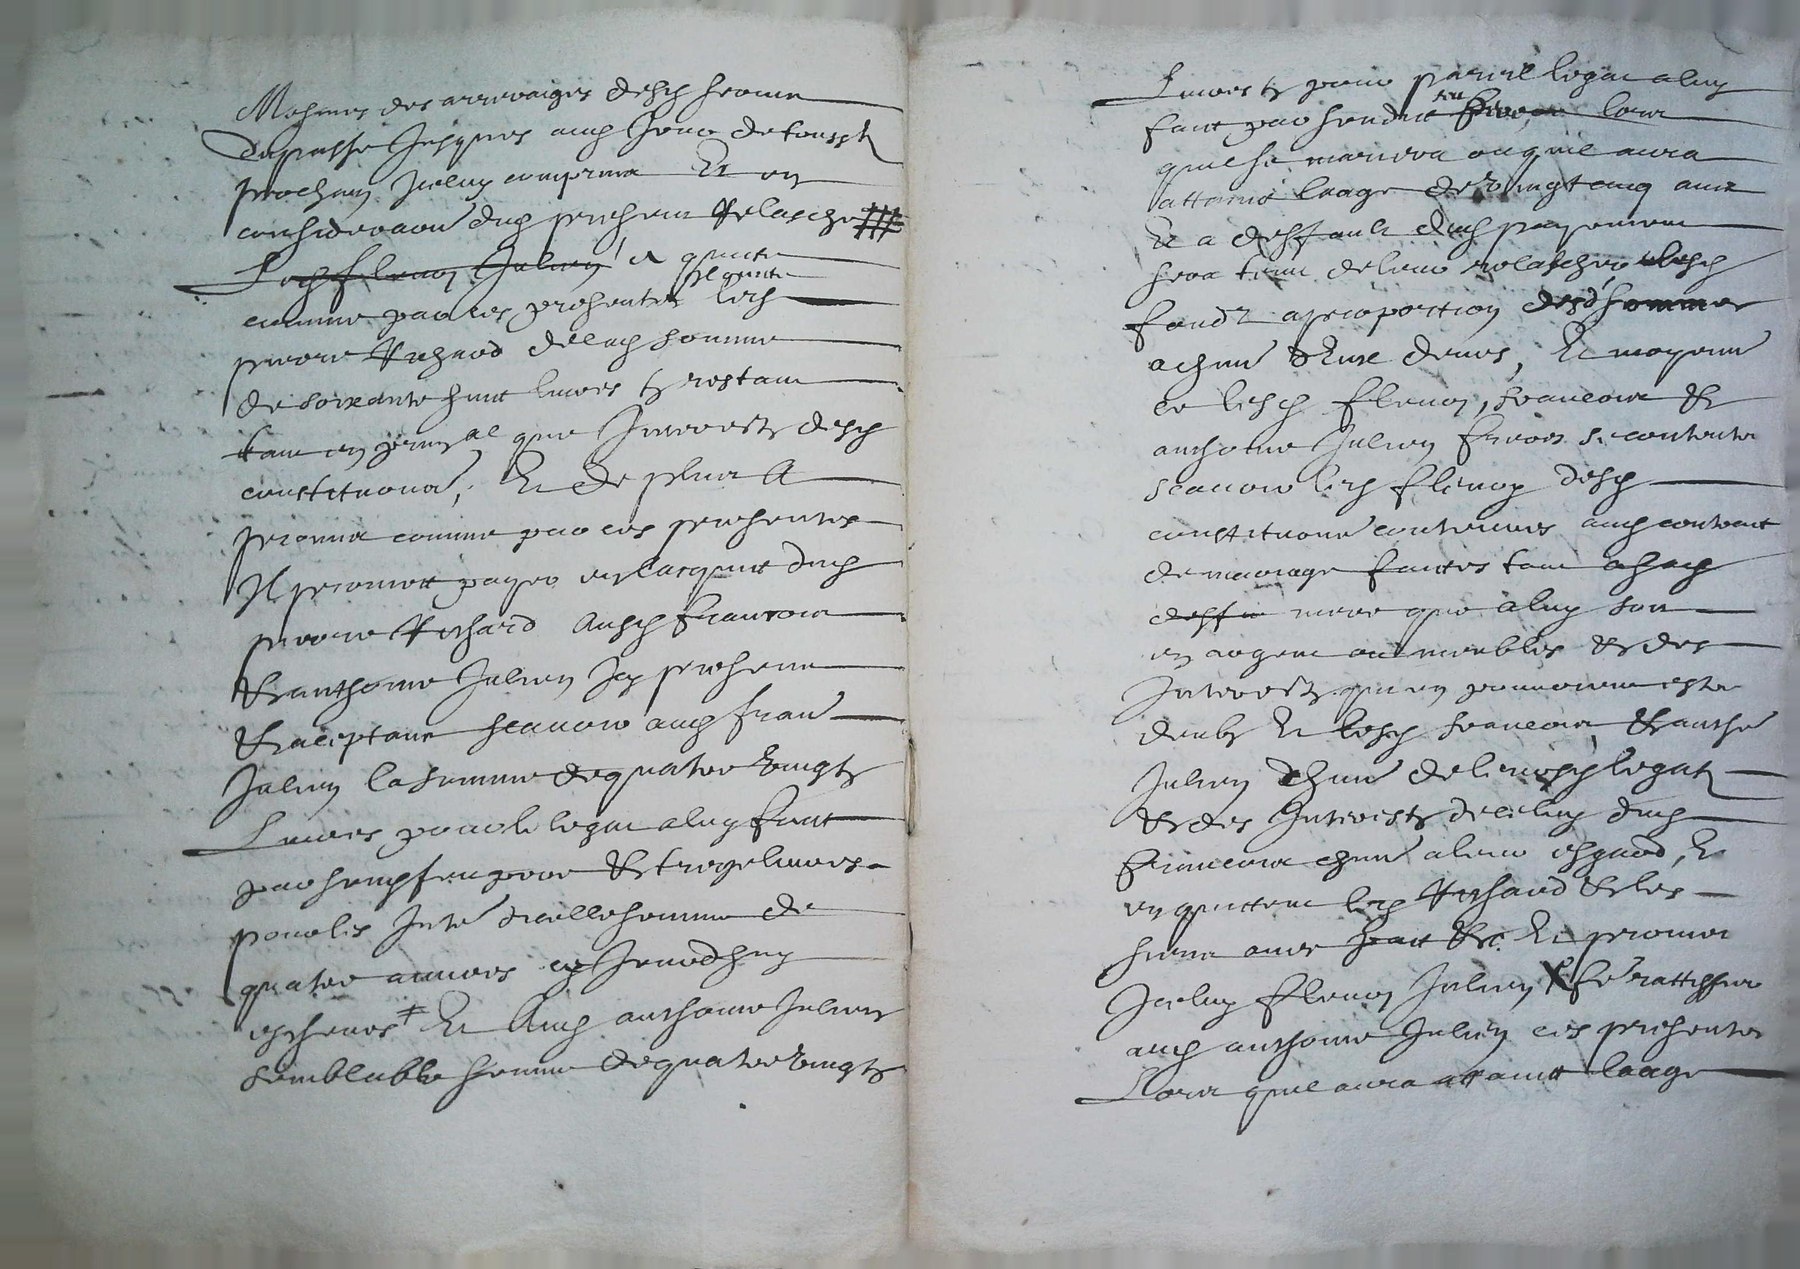 Mesmes des arreraiges desd somme
du passé jusques aud jour de toussts
prochain jceluy comprins Et en
consideraon dud present relasche
Led fleury Julien a quitte
comme par ces presentes quitte led
pierre Richard de lad somme
de soixante huit livres ts restant
tant en prinpal que Interests desd
constitutions, Et de plus a
promis comme par ces presentes
Il promet payer en lacquit dud
pierre Richard Ausd francois
& anthoine Julien jcy presents
& acceptant scavoir aud fran
Julien la somme de quatre vingts
Livres pour le legat a luy fait
par sond feu pere & treze livres
pour les Inte d'icelle somme de
quatre annees cy jourdhuy
escheues Et Aud anthoine Julien
semblable somme de quatre vingts
Livres ts pour pareil legat a luy
fait par sondit feu pere lors
quil se mariera ou quil aura
attaint laage de vingt cinq ans
Et a deffault dud payement
sera tenu de leur relascher desd
fonds a proportion desd sommes
a chun deux deues, Et moyennt
ce lesd fleury, francois &
anthoine Julien freres se contente
scavoir led fleury desd
constitutions contenues aud contract
de mariage faites tant a sad
mere que a luy soit
en argent ou meubles & des
Interests qui en pourroient estre
deubs Et lesd francois & anthe
Julien chun de leursd legats
& des Interests de celuy dud
francois chun a leur esgard, Et
en quittent led Richard & les
siens avec pact &c. Et promis
Jceluy fleury Julien fe rattiffier
aud anthoine Julien ces presentes
Lors quil aura attaint laage